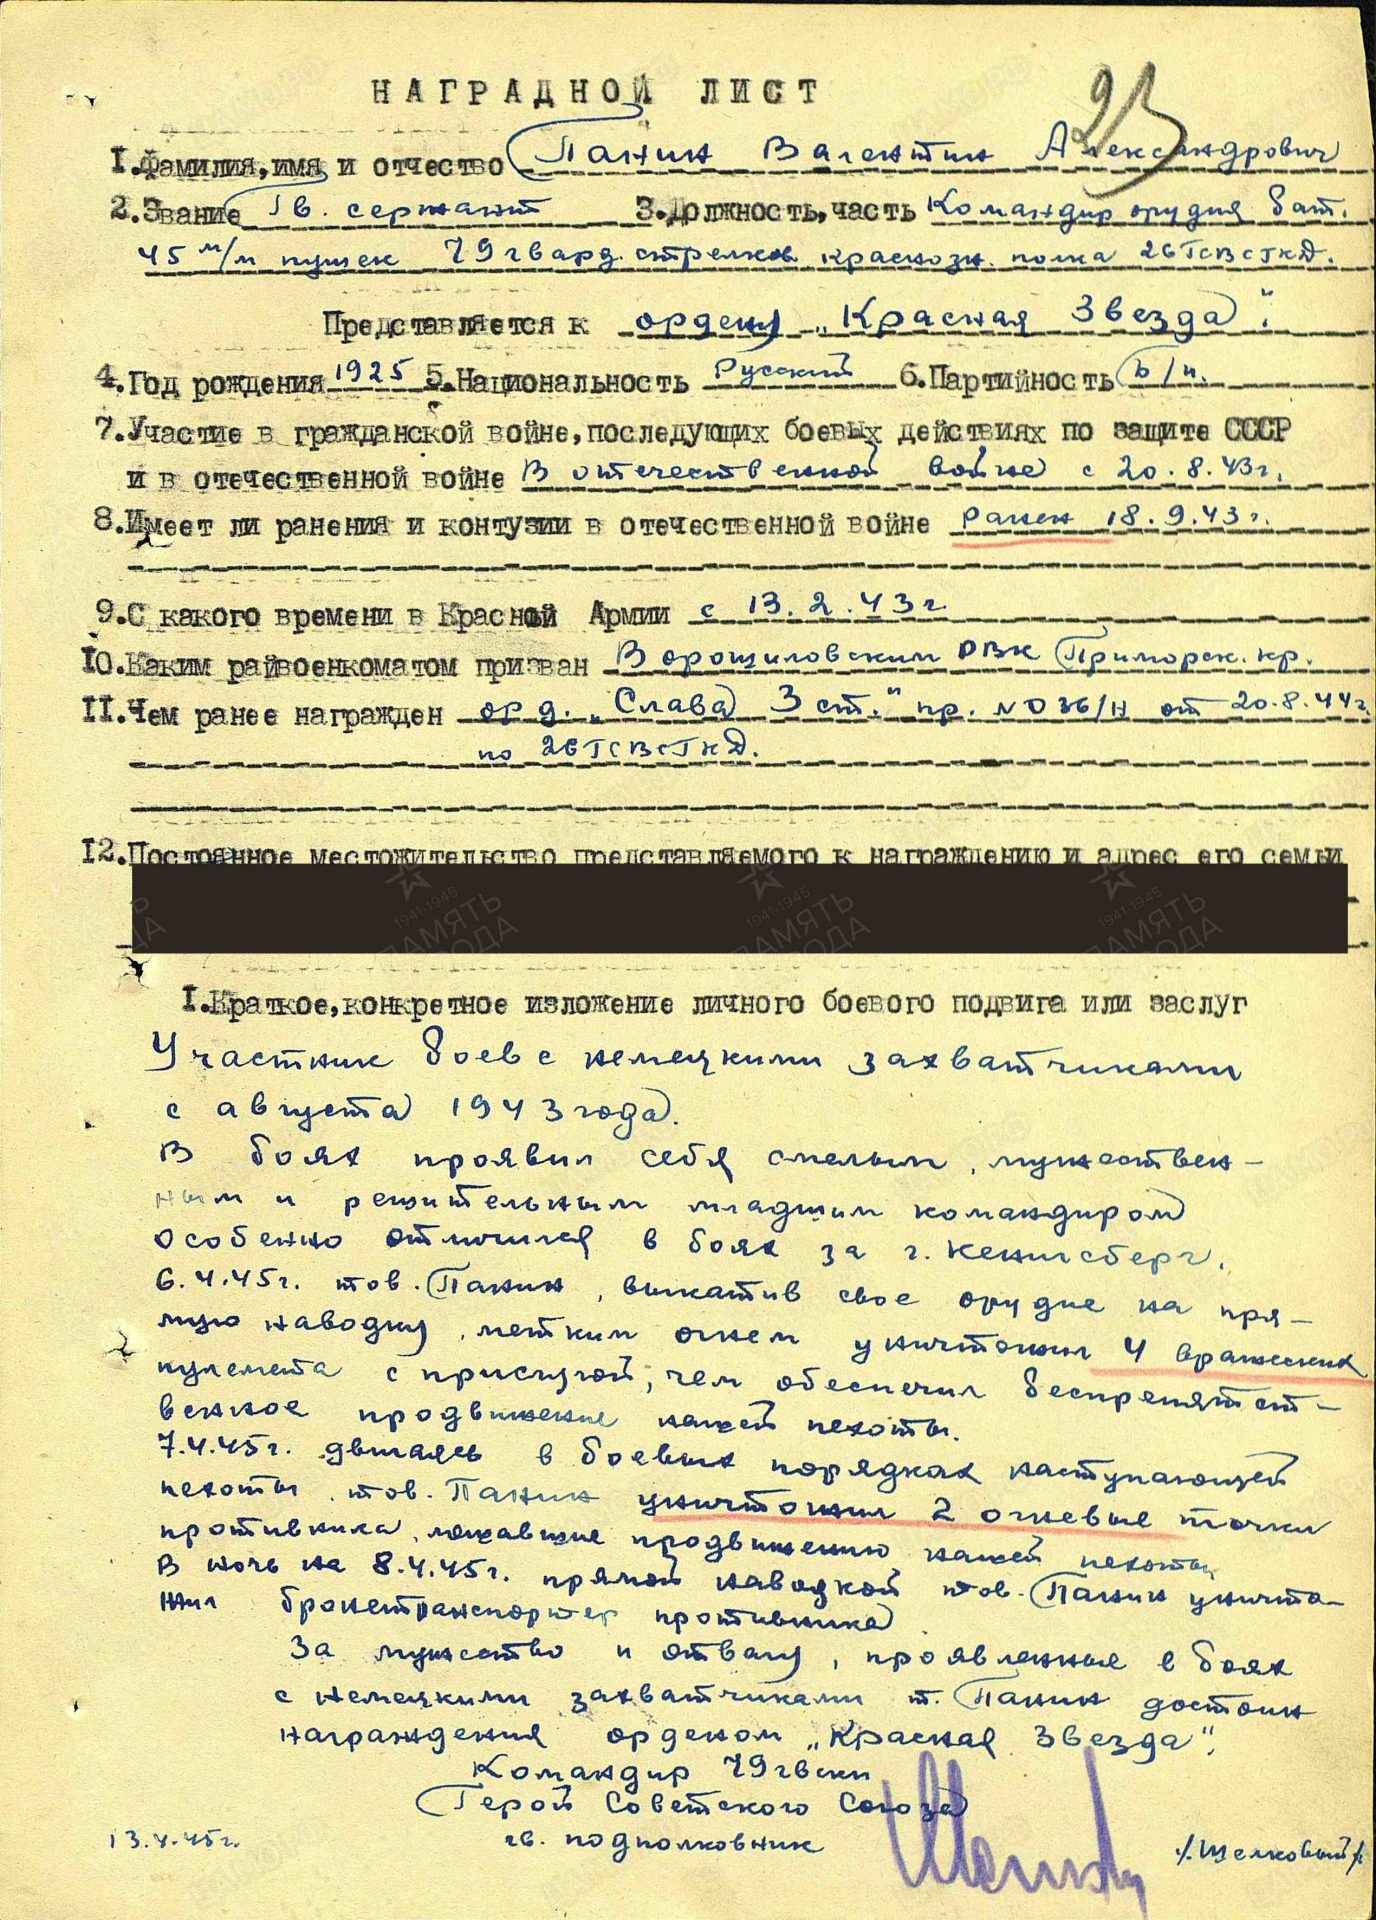 НАГРАДНОЙ ЛИСТ
23
1.Фамилия,имя и отчество Панин Валентин Александрович
2.Звание Гв. сержант 3.Должность,часть Командир орудия бат.
45 м/м пушек 79 гвард. стрелков. краснозн. полка 26 ГСВСГКД.
Представляется к ордену „Красная Звезда".
4.Год рождения 1925 5.Национальность Русский 6.Партийность б/п.
7.Участие в гражданской войне,последующих боевых действиях по защите СССР
и в отечественной войне В отечественной войне с 20.8.43г.
8.Имеет ли ранения и контузии в отечественной войне Ранен 18.9.43г.
9.С какого времени в Красной Армии с 13.2.43г.
10.Каким райвоенкоматом призван Ворошиловским ОВК Приморск. кр.
11.Чем ранее награжден орд. „Слава 3 ст." пр. № 036/н от 20.8.44г.
по 26 ГСВСГКД.
12.Постоянное местожительство представляемого к награждению и адрес его семьи
1941-1945 ПАМЯТЬ НАРОДА
1.Краткое,конкретное изложение личного боевого подвига или заслуг
Участник боев с немецкими захватчиками
с августа 1943 года.
В боях проявил себя смелым, мужествен-
ным и решительным младшим командиром
особенно отличился в боях за г. Кенигсберг.
6.4.45г. тов. Панин, выкатив свое орудие на пря-
мую наводку, метким огнем уничтожил 4 вражеских
пулемета с прислугой, чем обеспечил беспрепятст-
венное продвижение нашей пехоты.
7.4.45г. двигаясь в боевых порядках наступающей
пехоты, тов. Панин уничтожил 2 огневые точки
противника, мешавшие продвижению нашей пехоты.
В ночь на 8.4.45г. прямой наводкой тов. Панин уничто-
жил бронетранспортер противника.
За мужество и отвагу, проявленные в боях
с немецкими захватчиками т. Панин достоин
награждения орденом „Красная Звезда".
Командир 79 гвскп
Герой Советского Союза
13.4.45г. гв. подполковник /.Щелковый/.